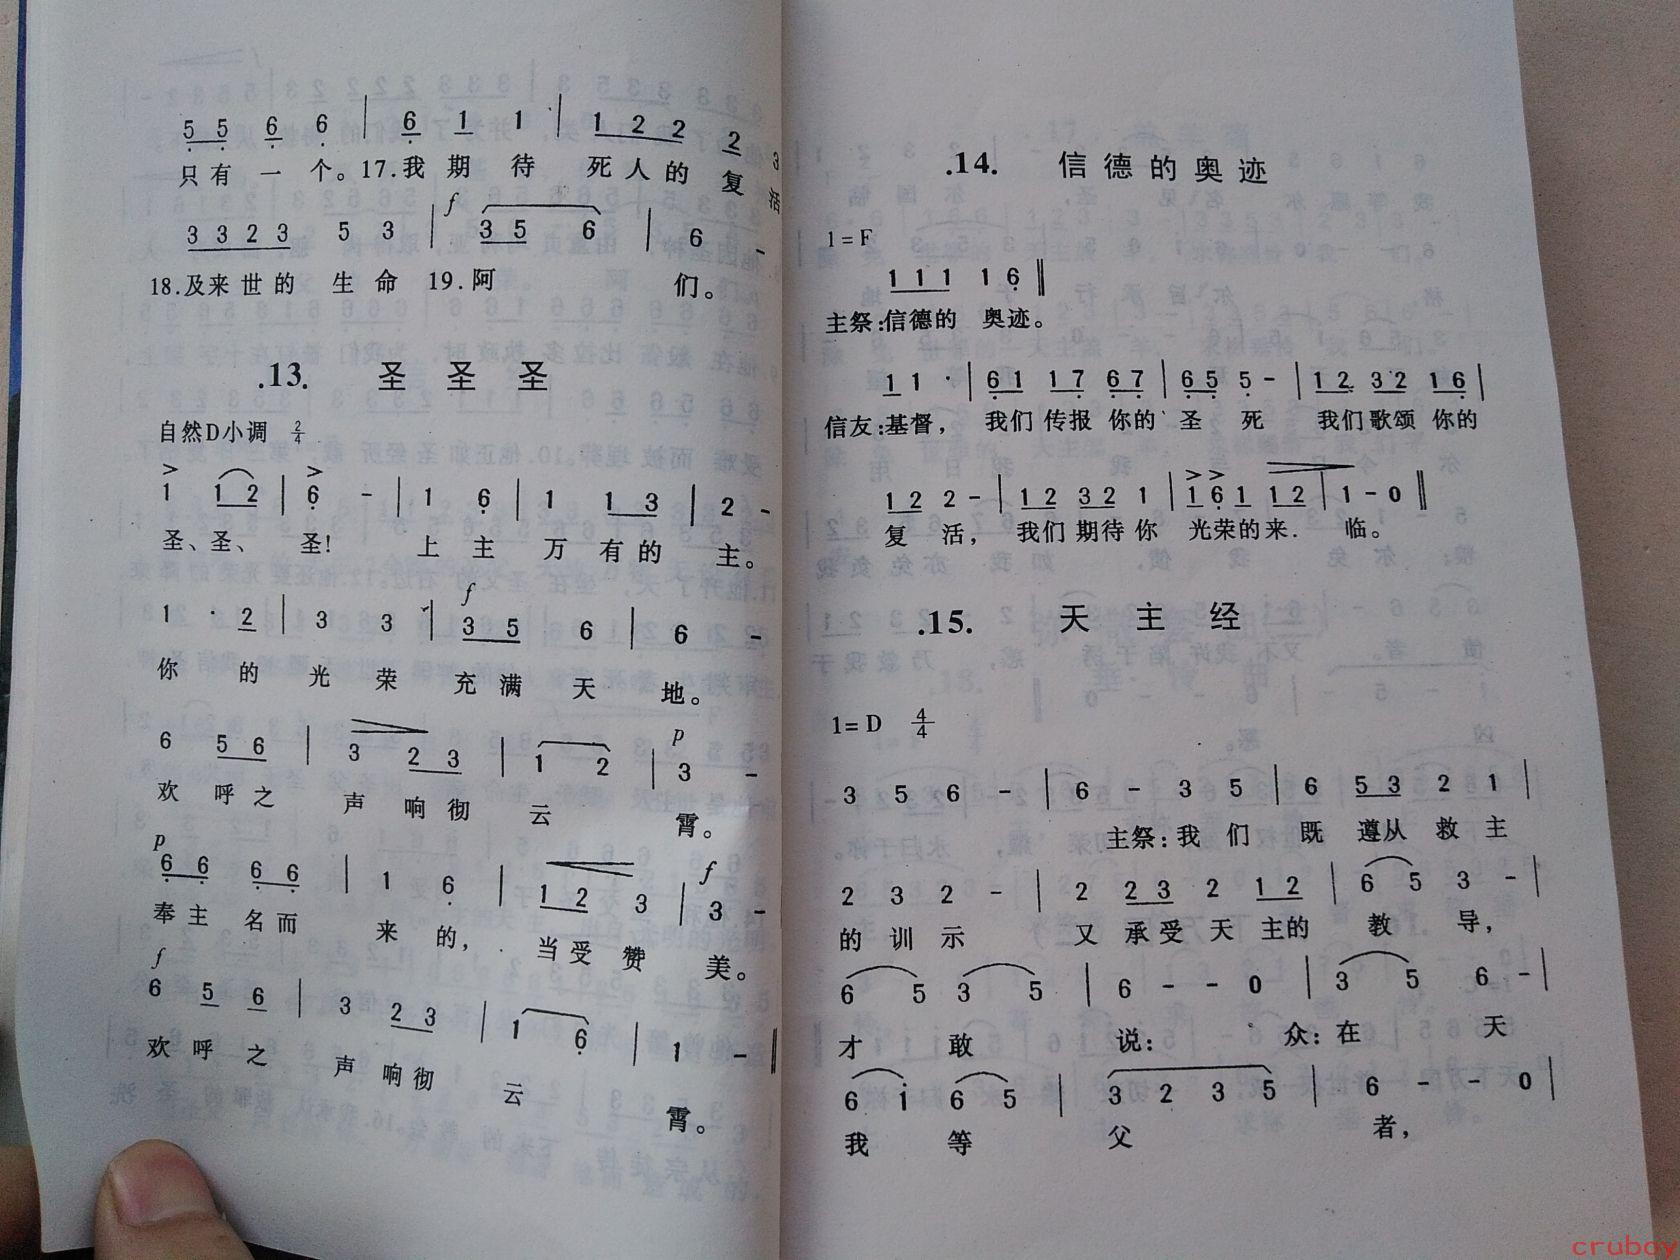 5 5 6 6 | 6 1 1 | 1 2 2 2 3
只有一个。17.我期待死人的复活
f
3 3 2 3 5 3 | 3 5 6 | 6 -
18.及来世的 生命 19.阿 们。
.13. 圣 圣 圣
自然D小调 2/4
> >
1 1 2 | 6 - | 1 6 | 1 1 3 | 2 -
圣、圣、 圣! 上主万有的主。
f
1 · 2 | 3 3 | 3 5 6 | 6 -
你的光荣充满天地。
6 5 6 | 3 2 3 | 1 2 | 3 -
p
欢呼之声响彻云霄。
p
6 6 6 6 | 1 6 | 1 2 3 | 3 -
f
奉主名而来的,当受赞美。
f
6 5 6 | 3 2 3 | 1 6 | 1 - ‖
欢呼之声响彻云霄。
.14. 信德的奥迹
1=F
1 1 1 1 6 ‖
主祭:信德的 奥迹。
1 1 · | 6 1 1 7 6 7 | 6 5 5 - | 1 2 3 2 1 6 |
信友:基督, 我们 传报 你的 圣 死 我们歌颂 你的
> >
1 2 2 - | 1 2 3 2 1 | 1 6 1 1 2 | 1 - 0 ‖
复 活, 我们期待你 光荣的来. 临。
.15. 天 主 经
1=D 4/4
3 5 6 - | 6 - 3 5 | 6 5 3 2 1 |
主祭:我 们 既 遵从 救 主
2 3 2 - | 2 2 3 2 1 2 | 6 5 3 - |
的 训 示 又 承受天 主的 教 导,
6 5 3 5 | 6 - - 0 | 3 5 6 - |
才 敢 说: 众:在 天
6 i 6 5 | 3 2 3 5 | 6 - - 0 |
我 等 父 者,
cruboy